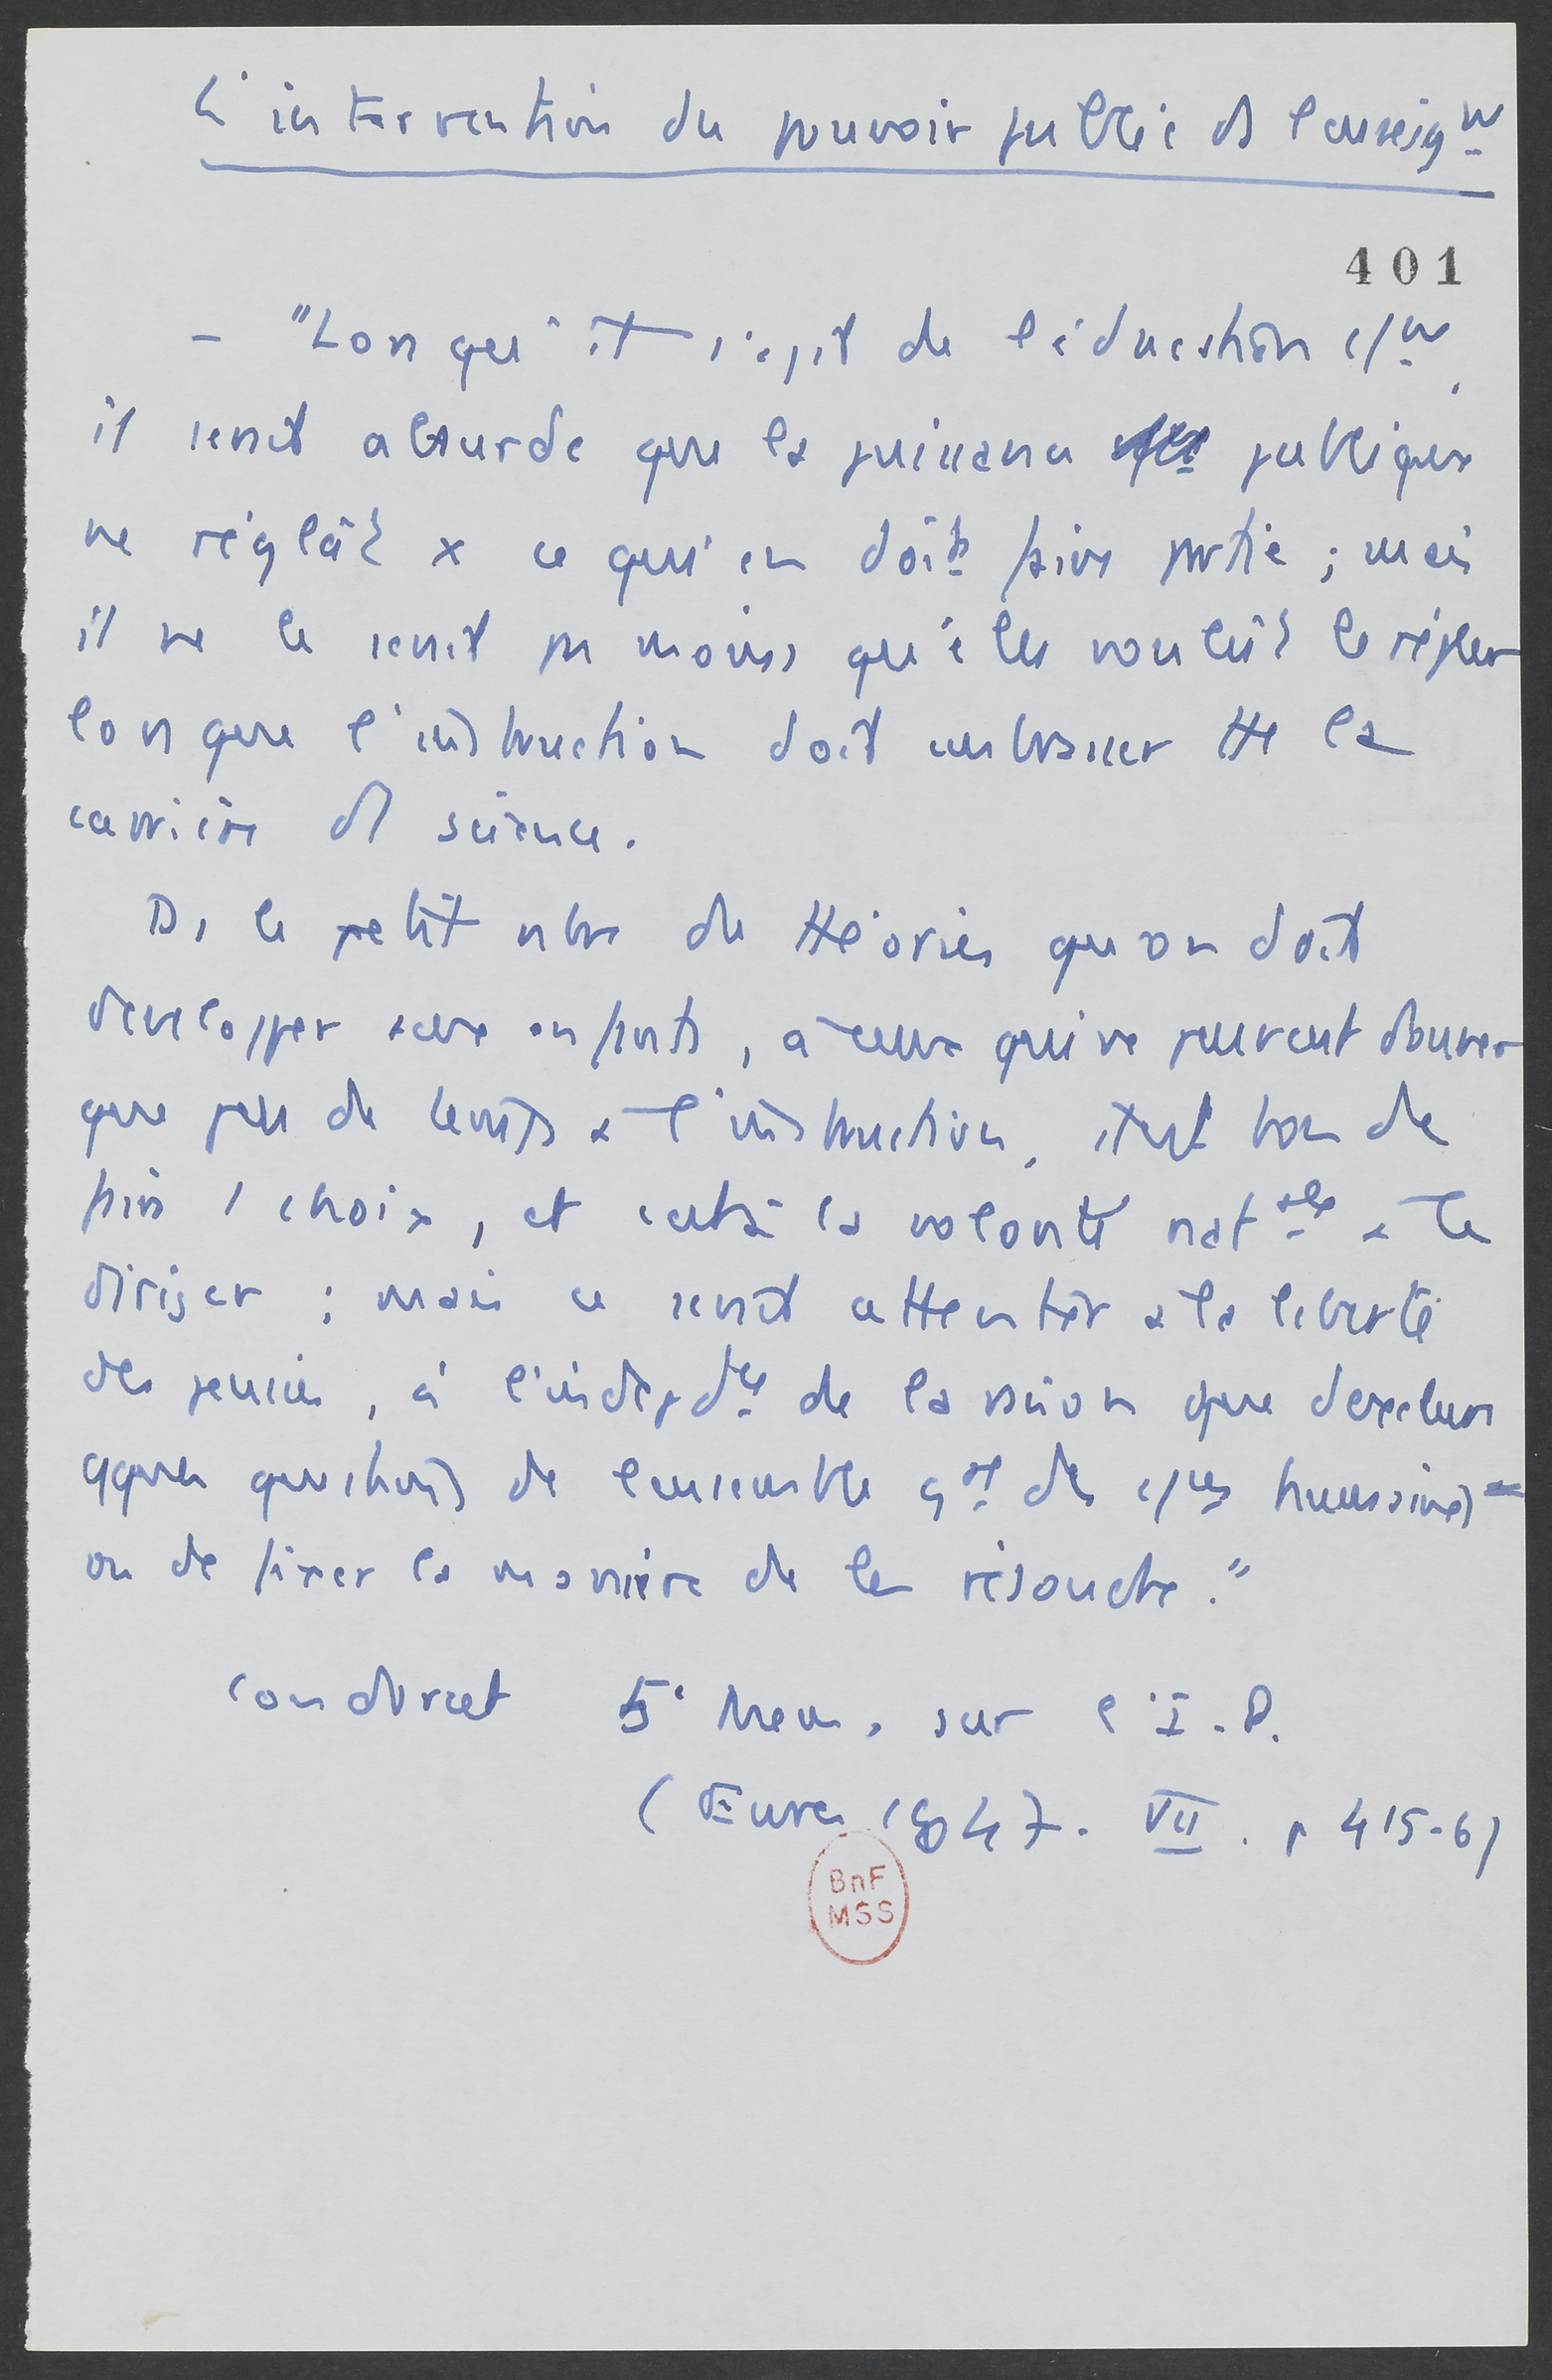 L'intervention du pouvoir public ds l'enseignt
401
- "Lorsqu'il s'agit de l'éducation cne,
il serait absurde que la puissance publique
ne réglât x ce qui en doit faire partie ; mais
il ne le serait pas moins qu'elle voulût le régler
lorsque l'instruction doit embrasser tte la
carrière d'1 science.
Ds le petit nbre de théories qu'on doit
développer aux enfants, à ceux qui ne peuvent donner
que peu de temps à l'instruction, il est bon de
faire 1 choix, et c'est à la volonté natale à le
diriger ; mais ce serait attenter à la liberté
des pensées, à l'indépdce de la raison que d'exclure
qques questions de l'ensemble gal des ces humaines
ou de fixer la manière de les résoudre."
Condorcet 5e Mem. sur l'I.P.
(Œuvres 1847. VII. p 415-6)
BnF
MSS